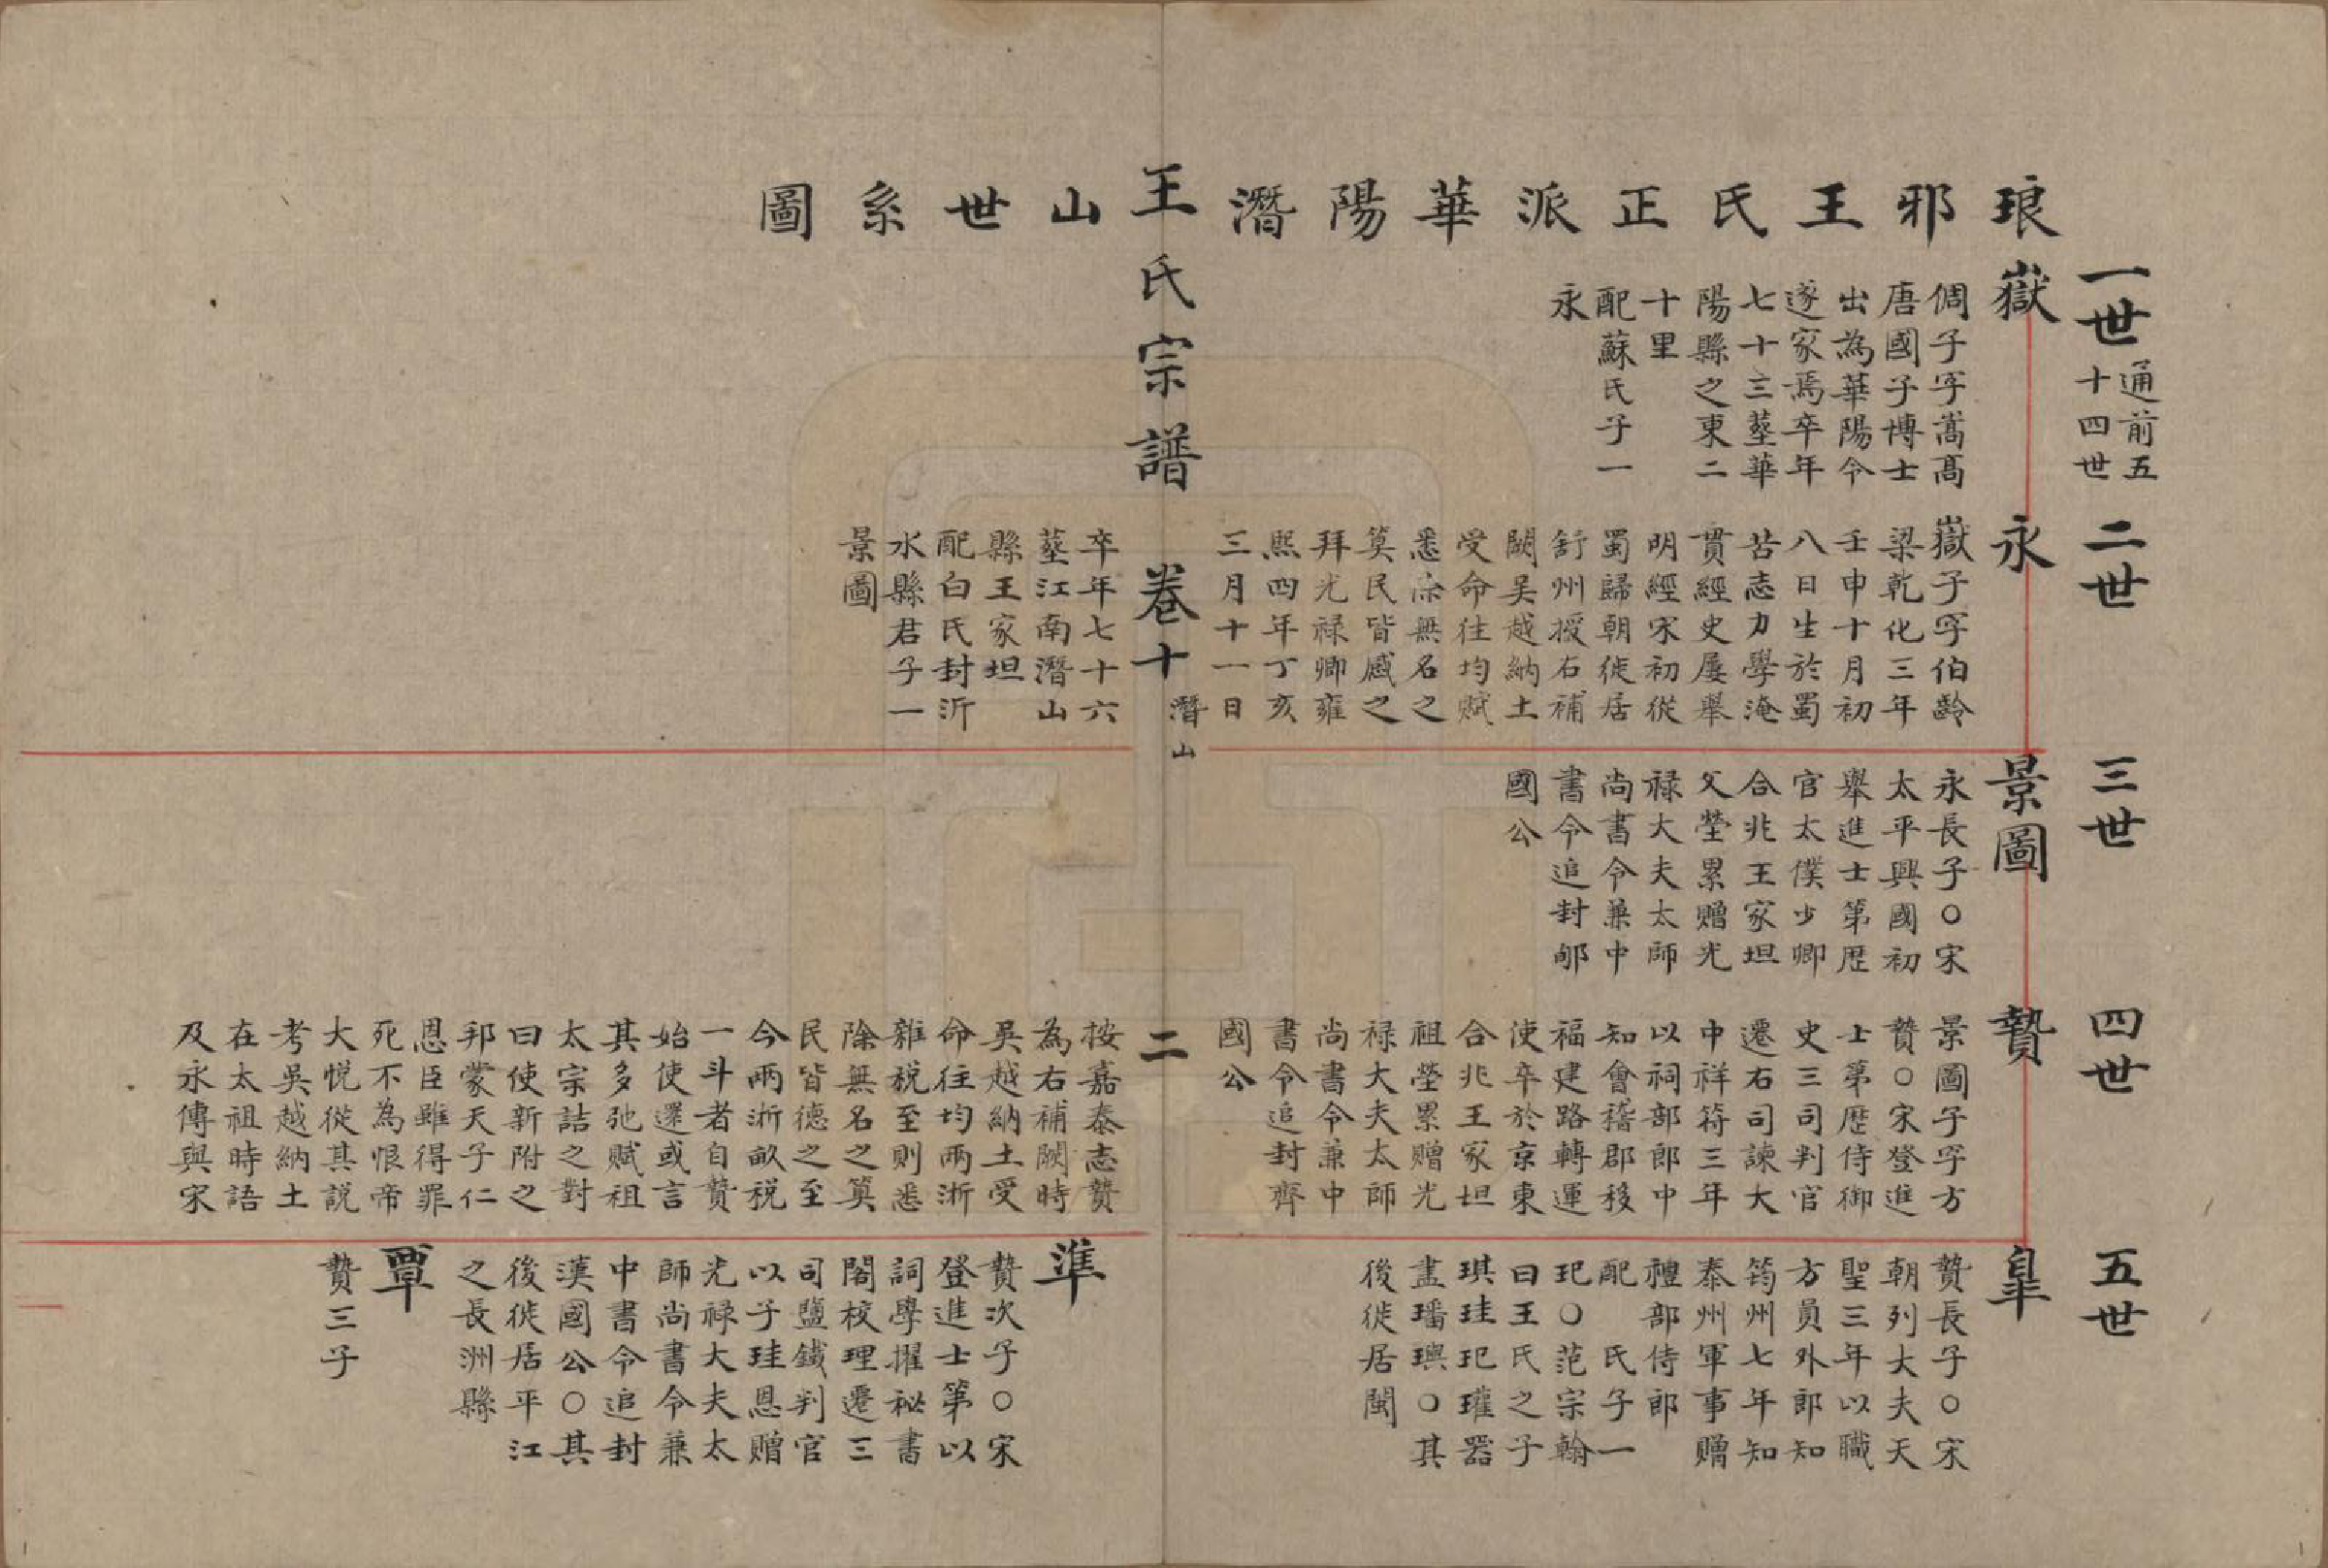 琅邪王氏正派華陽潛山世系圖
一世
通前五
十四世
嶽
倜子字嵩高
唐國子博士
出為華陽令
遂家焉卒年
七十三墓華
陽縣之東二
十里
配蘇氏子一
永
二世
永
嶽子字伯齡
梁乾化三年
壬申十月初
八日生於蜀
苦志力學淹
貫經史屢舉
明經宋初從
蜀歸朝徙居
舒州授右補
闕吳越納土
受命往均賦
悉除無名之
筭民皆感之
拜光禄卿雍
熙四年丁亥
三月十一日
卒年七十六
墓江南潛山
縣王家坦
配白氏封沂
水縣君子一
景圖
三世
景圖
永長子○宋
太平興國初
舉進士第歷
官太僕少卿
合兆王家坦
父塋累贈光
禄大夫太師
尚書令兼中
書令追封郇
國公
四世
贄
景圖子字方
贄○宋登進
士第歷侍御
史三司判官
遷右司諫大
中祥符三年
以祠部郎中
知會稽郡移
福建路轉運
使卒於京東
合兆王家坦
祖塋累贈光
禄大夫太師
尚書令兼中
書令追封齊
國公
按嘉泰志贄
為右補闕時
吳越納土受
命往均兩浙
雜稅至則悉
除無名之筭
民皆德之至
今兩浙畝稅
一斗者自贄
始使還或言
其多弛賦租
太宗詰之對
曰使新附之
邦蒙天子仁
恩臣雖得罪
死不為恨帝
大悅從其説
考吳越納土
在太祖時語
及永傳與宋
五世
皐
贄長子○宋
朝列大夫天
聖三年以職
方員外郎知
筠州七年知
泰州軍事贈
禮部侍郎
配　氏子一
玘○范宗翰
曰王氏之子
琪珪玘瓘器
畫璠璵○其
後徙居閩
準
贄次子○宋
登進士第以
詞學擢秘書
閣校理遷三
司鹽鐵判官
以子珪恩贈
光禄大夫太
師尚書令兼
中書令追封
漢國公○其
後徙居平江
之長洲縣
覃
贄三子
王氏宗譜
卷十
潛山
二